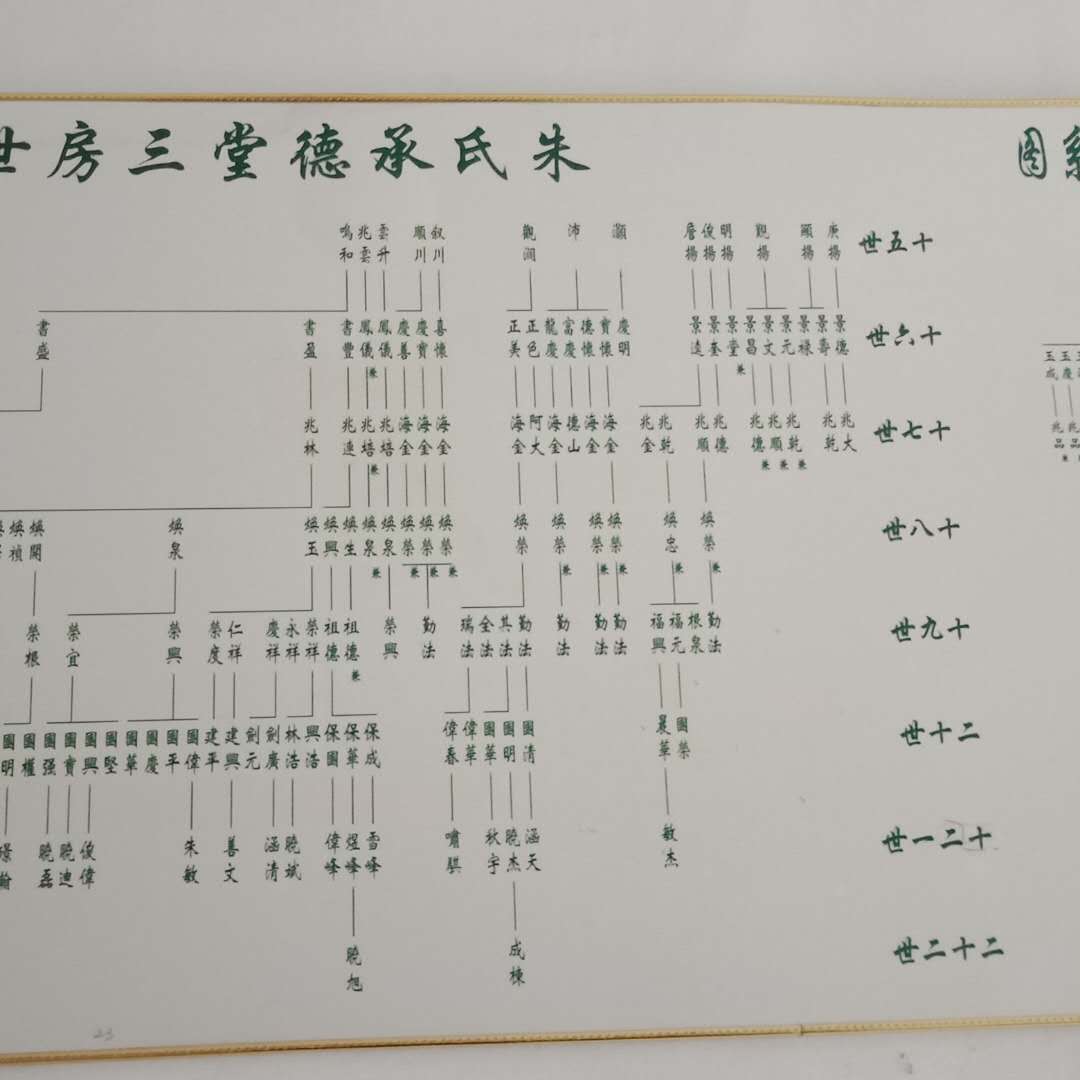 图
朱氏承德堂三房世
十五世
庚揚 顯揚 觀揚 明揚 俊揚 詹揚 灝 沛 觀瀾 叙川 順川 雲升 兆雲 鳴和
十六世
景德 景壽 景祿 景元 景文 景昌 景堂 景奎 景逵 慶明 寶懷 德懷 富慶 龍慶 正色 正美 喜懷 慶寶 慶善 鳳儀 鳳儀 書豐 書盈 書盛
兼 兼
玉慶 玉成
十七世
兆大 兆乾 兆乾 兆順 兆德 兆德 兆順 兆乾 兆金 海金 海金 德山 海金 阿大 海金 海金 海金 海金 兆培 兆培 兆連 兆林
兼 兼 兼 兼
兆品 兆品
兼
十八世
煥榮 煥忠 煥榮 煥榮 煥榮 煥榮 煥榮 煥榮 煥榮 煥泉 煥泉 煥生 煥興 煥玉 煥泉 煥開 煥禎
兼 兼 兼 兼 兼 兼 兼 兼 兼
十九世
勤法 根泉 福元 福興 勤法 勤法 勤法 勤法 其法 全法 瑞法 勤法 榮興 祖德 祖德 榮祥 永祥 慶祥 仁祥 榮度 榮興 榮宜 榮根
兼
二十世
國榮 晨華 國清 國明 國華 偉華 偉春 保成 保華 保國 興浩 林浩 劍廣 劍元 建興 建平 國偉 國平 國慶 國華 國堅 國興 國寶 國强 國權 國明
二十一世
敏杰 涵天 曉杰 秋宇 嘯騏 雪峰 煜峰 偉峰 曉斌 涵清 善文 朱敏 俊偉 曉迪 曉磊
二十二世
成棟 曉旭
23